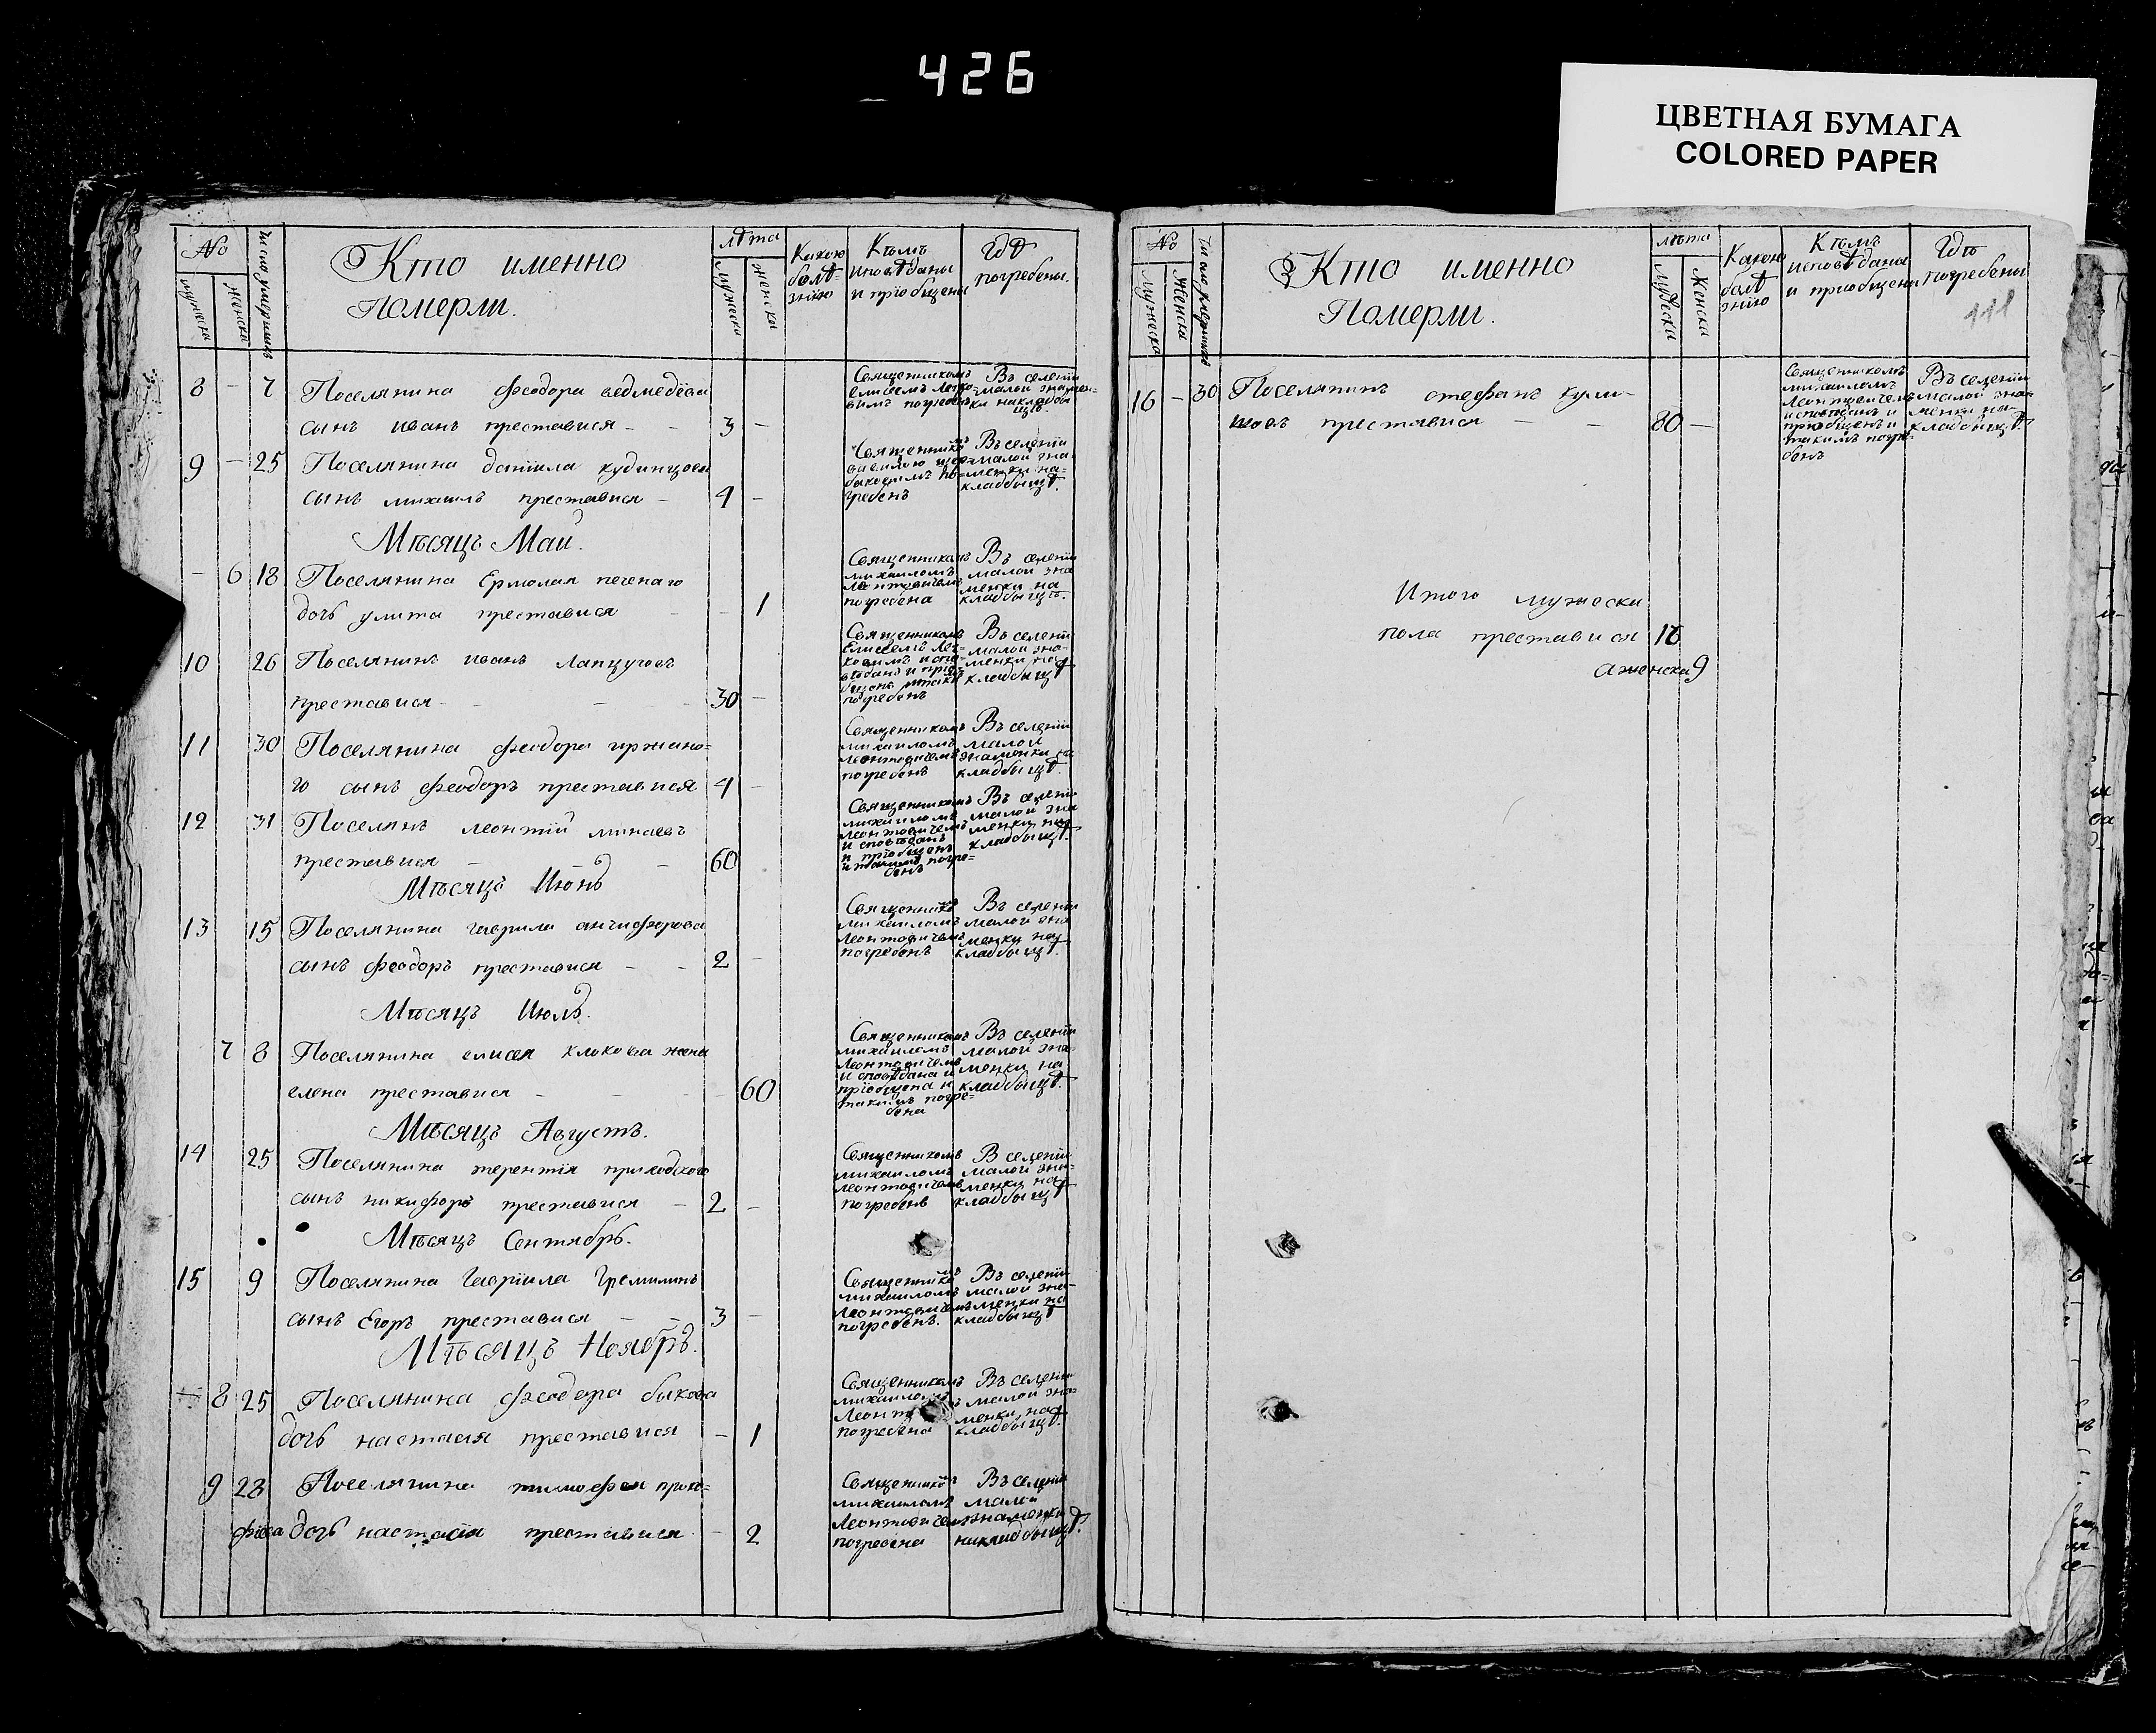 426
ЦВЕТНАЯ БУМАГА
COLORED PAPER
№
мужеска
женска
число умершихъ
Кто именно
Померли.
лѣта
мужеска
женска
Какою
болѣ-
знію
Кѣмъ
исповѣданы
и пріобщены
Гдѣ
погребены.
8 - 7 Поселянина Феодора ведмедева
сынъ иванъ преставися - - 3 -
Священникомъ
елисеемъ легко-
вимъ погребенъ
Въ селеніи
малой знамен-
ки накладби
щѣ.
9 - 25 Поселянина даніила кудинцова
сынъ михаилъ преставися - 4 -
Въ селеніи
малой зна
менки на-
кладбыщѣ.
гребенъ
Мѣсяцъ Маій.
- 6 18 Поселянина Ермолая печенаго
дочь улита преставися - - 1
Священникомъ
михаиломъ
леонтовичемъ
погребена
Въ селеніи
малой зна
менки на
кладбыщѣ.
10 26 Поселянинъ иванъ лапцуговъ
преставися - - - 30 -
Священникомъ
Елисеемъ лег-
ковимъ испо-
вѣданъ и прио-
бщенъ и таки
погребенъ
Въ селеніи
малой зна-
менки на
кладбыщѣ
11 30 Поселянина феодора иржано=
го сынъ феодоръ преставися 4 -
Священникомъ
михаиломъ
леонтовичемъ
погребенъ
Въ селеніи
малой
знаменки на
кладбыщѣ.
12 31 Поселянъ леонтій минаевъ
преставися - - 60
Священникомъ
михаиломъ
леонтовичемъ
исповѣданъ
и пріобщенъ
и такимъ погре=
бенъ
Въ селени
малой зна
менки на
кладбыщѣ.
Мѣсяцъ Июнь
13 15 Поселянина гаврила анчифорова
сынъ феодоръ преставися - - 2 -
Священнико
михаиломъ
леонтовичемъ
погребенъ
Въ селении
малой зна
менки на
кладбыщѣ.
Мѣсяцъ Июль.
7 8 Поселянина елисея клокова жена
елена преставися - - - - 60
Священникомъ
михаиломъ
леонтовичемъ
исповѣдана и
пріобщена и
такимъ погре=
бена
Въ селеніи
малой зна-
менки на
кладбыщѣ.
Мѣсяцъ Августъ.
14 25 Поселянина терентія приходкого
сынъ никифоръ преставися - 2 -
Священникомъ
михаиломъ
леонтовичемъ
погребенъ
В селеніи
малой зна-
менки на
кладбыщѣ
Мѣсяцъ Сентябрь.
15 9 Поселянина Гавріила Гремилинъ
сынъ Егоръ преставися - - 3 -
Священнико
михаиломъ
леонтовичемъ
погребенъ.
Въ селеніи
малой зна-
менки на
кладбыщѣ
Мѣсяцъ Ноябрь.
- 8 25 Поселянина феодора быкова
дочь настасія преставися - 1
Священникомъ
михаиломъ
Леонт
погребена
Въ селении
малой зна=
менки на
кладбыщѣ.
9 28 Поселянина тимофея проко=
фьева дочь настасія преставися - 2
Священнико
михаиломъ
леонтовичемъ
погребена
Въ селении
малой
знаменки
накладбыщѣ.
№
мужеска
женска
Кто именно
Померли.
лѣта
мужеска
женска
Какою
болѣ
знію
Кѣмъ
исповѣданы
и приобщены
Гдѣ
погребены
111
16 - 30 Поселянинъ стефанъ кули-
шовъ преставися - - 80 -
Священникомъ
михаиломъ
леонтовичемъ
исповѣданъ и
приобщенъ и
такимъ погре-
бенъ
Въ селеніи
малой зна
менки на-
кладбыщѣ.
Итого мужеска
пола преставися 16
а женска 9